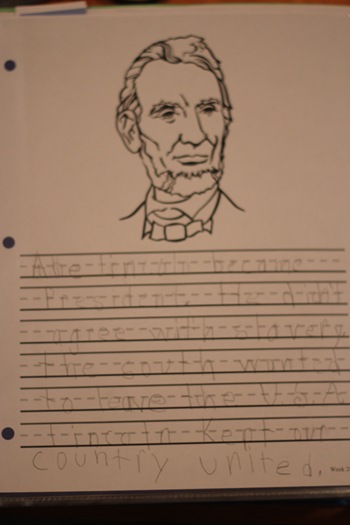 Abe Lincoln became
President. He didn't
agree with slavery
the south wanted
to leave the U.S.A
Lincoln kept our
country united.
Week 2